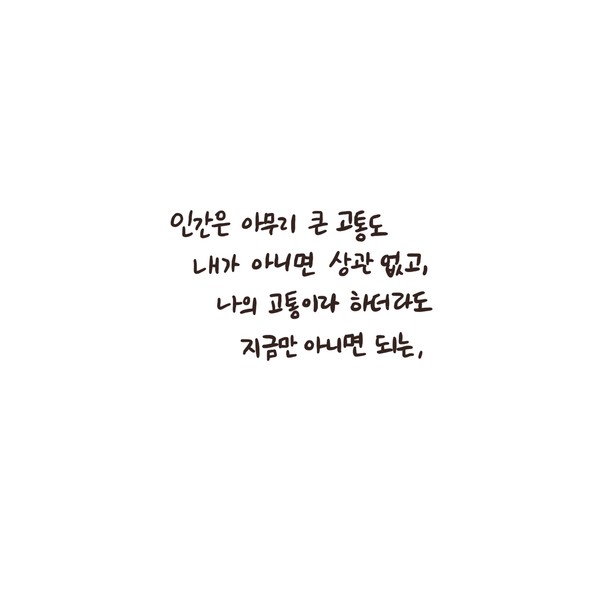 인간은 아무리 큰 고통도
내가 아니면 상관 없고,
나의 고통이라 하더라도
지금만 아니면 되는,